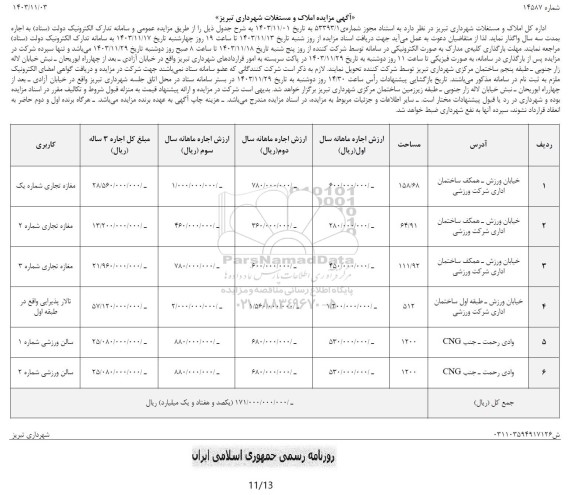 شماره ۱۴۵۸۷
۱۴۰۳/۱۱/۰۳
«آگهی مزایده املاک و مستغلات شهرداری تبریز»
اداره کل املاک و مستغلات شهرداری تبریز در نظر دارد به استناد مجوز شماره‌ی ۵۳۳۹۳/۱ به تاریخ ۱۴۰۳/۱۱/۰۱ به شرح جدول ذیل را از طریق مزایده عمومی و سامانه تدارک الکترونیک دولت (ستاد) به اجاره
بمدت سه سال واگذار نماید. لذا از متقاضیان دعوت به عمل می‌آید جهت دریافت اسناد مزایده از روز شنبه تاریخ ۱۴۰۳/۱۱/۱۳ تا ساعت ۱۹ روز چهارشنبه تاریخ ۱۴۰۳/۱۱/۱۷ به سامانه تدارک الکترونیک دولت (ستاد)
مراجعه نمایند. مهلت بارگذاری کلیه‌ی مدارک به صورت الکترونیکی در سامانه توسط شرکت کننده از روز پنج شنبه تاریخ ۱۴۰۳/۱۱/۱۸ تا ساعت ۸ صبح روز دوشنبه تاریخ ۱۴۰۳/۱۱/۲۹ می‌باشد و تنها سپرده شرکت در
مزایده پس از بارگذاری در سامانه، به صورت فیزیکی تا ساعت ۱۱ روز دوشنبه به تاریخ ۱۴۰۳/۱۱/۲۹ در پاکت سربسته به امور قراردادهای شهرداری تبریز واقع در خیابان آزادی ـ بعد از چهارراه ابوریحان ـ نبش خیابان لاله
زار جنوبی ـ طبقه پنجم ساختمان مرکزی شهرداری تبریز توسط شرکت کننده تحویل نمایند. لازم به ذکر است شرکت کنندگانی که عضو سامانه ستاد نمی‌باشند جهت شرکت در مزایده و دریافت گواهی امضای الکترونیک
ملزم به ثبت نام در سامانه مذکور می‌باشند. تاریخ بازگشایی پیشنهادات رأس ساعت ۱۴/۳۰ روز دوشنبه تاریخ ۱۴۰۳/۱۱/۲۹ در بستر سامانه ستاد در محل اتاق جلسه شهرداری تبریز واقع در خیابان آزادی ـ بعد از
چهارراه ابوریحان ـ نبش خیابان لاله زار جنوبی ـ طبقه زیرزمین ساختمان مرکزی شهرداری تبریز برگزار خواهد شد. بدیهی است شرکت در مزایده و ارائه پیشنهاد قیمت به منزله قبول شروط و تکالیف مقرر در اسناد مزایده
بوده و شهرداری در رد یا قبول پیشنهادات مختار است. ـ سایر اطلاعات و جزئیات مربوط به مزایده، در اسناد مزایده مندرج می‌باشد. ـ هزینه چاپ آگهی به عهده برنده مزایده می‌باشد. ـ هرگاه برنده اول و دوم حاضر به
انعقاد قرارداد نشوند، سپرده آنها به نفع شهرداری ضبط خواهد شد.
ردیف آدرس مساحت ارزش اجاره ماهانه سال اول(ریال) ارزش اجاره ماهانه سال دوم(ریال) ارزش اجاره ماهانه سال سوم (ریال) مبلغ کل اجاره ۳ ساله (ریال) کاربری
۱ خیابان ورزش ـ همکف ساختمان اداری شرکت ورزشی ۱۵۸/۶۸ ـ/۶۰۰/۰۰۰/۰۰۰ ـ/۷۸۰/۰۰۰/۰۰۰ ـ/۱/۰۰۰/۰۰۰/۰۰۰ ـ/۲۸/۵۶۰/۰۰۰/۰۰۰ مغازه تجاری شماره یک
۲ خیابان ورزش ـ همکف ساختمان اداری شرکت ورزشی ۶۴/۹۱ ـ/۲۸۰/۰۰۰/۰۰۰ ـ/۳۶۰/۰۰۰/۰۰۰ ـ/۴۶۰/۰۰۰/۰۰۰ ـ/۱۳/۲۰۰/۰۰۰/۰۰۰ مغازه تجاری شماره ۲
۳ خیابان ورزش ـ همکف ساختمان اداری شرکت ورزشی ۱۱۱/۹۲ ـ/۴۵۰/۰۰۰/۰۰۰ ـ/۶۰۰/۰۰۰/۰۰۰ ـ/۷۸۰/۰۰۰/۰۰۰ ـ/۲۱/۹۶۰/۰۰۰/۰۰۰ مغازه تجاری شماره ۳
۴ خیابان ورزش ـ طبقه اول ساختمان اداری شرکت ورزشی ۵۱۲ ـ/۱/۲۰۰/۰۰۰/۰۰۰ ـ/۱/۵۶۰/۰۰۰/۰۰۰ ـ/۲/۰۰۰/۰۰۰/۰۰۰ ـ/۵۷/۱۲۰/۰۰۰/۰۰۰ تالار پذیرایی واقع در طبقه اول
۵ وادی رحمت ـ جنب CNG ۱۲۰۰ ـ/۵۳۰/۰۰۰/۰۰۰ ـ/۶۸۰/۰۰۰/۰۰۰ ـ/۸۸۰/۰۰۰/۰۰۰ ـ/۲۵/۰۸۰/۰۰۰/۰۰۰ سالن ورزشی شماره ۱
۶ وادی رحمت ـ جنب CNG ۱۲۰۰ ـ/۵۳۰/۰۰۰/۰۰۰ ـ/۶۸۰/۰۰۰/۰۰۰ ـ/۸۸۰/۰۰۰/۰۰۰ ـ/۲۵/۰۸۰/۰۰۰/۰۰۰ سالن ورزشی شماره ۲
جمع کل (ریال) ـ/۱۷۱/۰۰۰/۰۰۰/۰۰۰ (یکصد و هفتاد و یک میلیارد) ریال
ش۰۳۱۱۰۳۵۹۴۹۱۷۱۲۶
شهرداری تبریز
ParsNamadData
پایگاه اطلاع رسانی مناقصه و مزایده
۰۲۱-۸۸۳۴۹۶۷۰-۵
روزنامه رسمی جمهوری اسلامی ایران
11/13